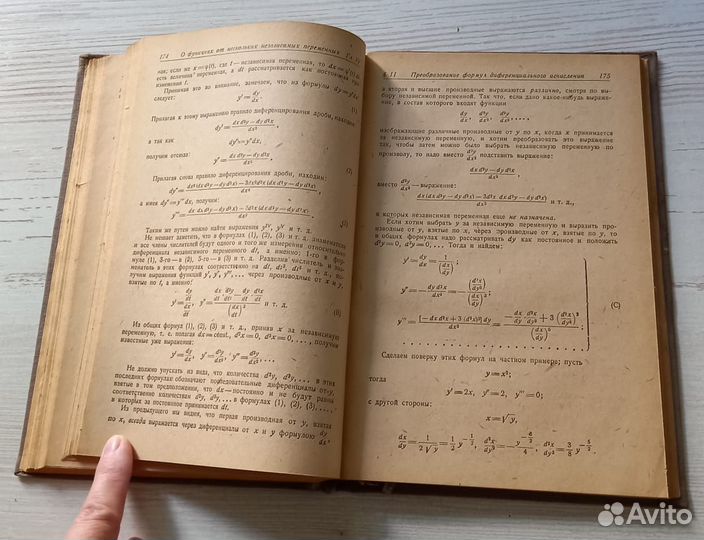 174 О функциях от нескольких независимых переменных Гл. IV
ная; если же x=φ(t), где t — независимая переменная, то dx=φ'(t) dt
есть величина переменная, а dt рассматривается как постоянная при
изменении t.
Принимая это во внимание, замечаем, что из формулы dy=y'dx
следует:
y'=dy/dx. (1)
Прилагая к этому выражению правило диференцирования дроби, находим:
dy'=(dx d²y — dy d²x)/dx²,
а так как
dy'=y''dx,
получим отсюда:
y''=(dx d²y — dy d²x)/dx³. (2)
Прилагая снова правило диференцирования дроби, находим:
а имея dy''=y'''dx, получим:
(3)
Таким же путем можно найти выражения yᴵⱽ, yⱽ и т. д.
Не мешает заметить, что в формулах (1), (2), (3) и т. д. знаменатели
и все члены числителей будут одного и того же измерения относительно
диференциала независимого переменного dt, а именно: 1-го в форму-
муле (1), 3-го — в (2), 5-го — в (3) и т. д. Разделив числитель и зна-
менатель в этих формулах соответственно на dt, dt³, dt⁵ и т. д., по-
лучим выражения функций y', y'', y''', ... через производные от x и y,
взятые по t, а именно:
и т. д.
Из общих формул (1), (2), (3) и т. д., приняв x за независимую
переменную, т. е. полагая dx=const., d²x=0, d³x=0, ..., получим
известные уже выражения:
y'=dy/dx, y''=d²y/dx², y'''=d³y/dx³.
Не должно упускать из вида, что количества d²y, d³y, ... в этих
последних формулах обозначают последовательные диференциалы от y,
взятые в том предположении, что dx — постоянно и не будут равны
соответственно количествам d²y, d³y, ... в формулах (1), (2), (3), ...,
в которых за постоянное принимается dt.
Из предыдущего мы видим, что первая производная от y, взятая
по x, всегда выражается через диференциалы от x и y формулою dy/dx,
§ 11 Преобразование формул диференциального исчисления 175
а вторая и высшие производные выражаются различно, смотря по вы-
бору независимой переменной. Так что, если дано какое-нибудь выраже-
ние, в состав которого входят функции
dy/dx, d²y/dx², d³y/dx³, ...,
изображающие различные производные от y по x, когда x принимается
за независимую переменную, и хотим преобразовать это выражение
так, чтобы затем можно было выбрать независимую переменную по
произволу, то надо вместо d²y/dx² подставить выражение:
(dx d²y — dy d²x)/dx³,
вместо d³y/dx³ — выражение:
и т. д.,
в которых независимая переменная еще не назначена.
Если хотим выбрать y за независимую переменную и выразить про-
изводные от y, взятые по x, через производные от x, взятые по y, то
в общих формулах надо рассматривать dy как постоянное и положить
d²y=0, d³y=0, ... Тогда и найдем:
y'=dy/dx=1/(dx/dy);
(C)
Сделаем поверку этих формул на частном примере; пусть
y=x²;
тогда
y'=2x, y''=2, y'''=0;
с другой стороны:
x=√y,
Avito